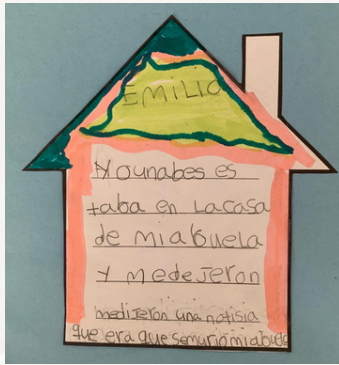 EMILIO
Yo unabes es
taba en La casa
de mi abuela
Y medejeron
medijeron una notisia
que era que semurio mi abuelo